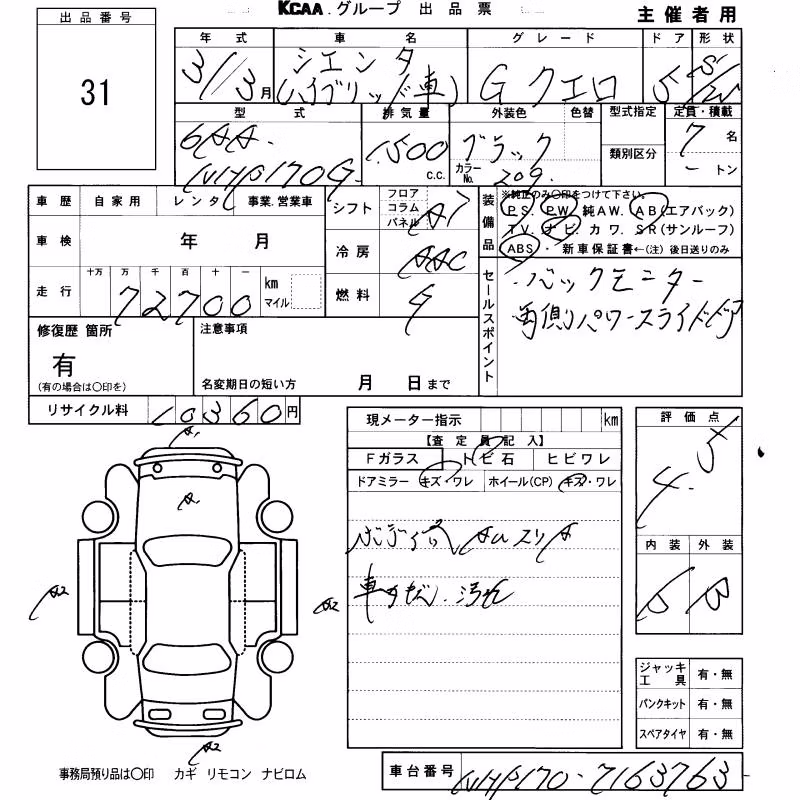 KCAA.グループ 出品票
主催者用
出品番号
31
年式 車名 グレード ドア 形状
3/3月 シエンタ (ハイブリッド車) G クエロ 5 S/W
型式 排気量 外装色 色替 型式指定 定員・積載
6AA- 1500 ブラック 7名
NHP170G c.c. カラーNo. 209 類別区分 ートン
車歴 自家用 レンタ 事業.営業車
シフト フロア コラム パネル AT
装備品 ※純正のみ〇印をつけて下さい
PS. PW. 純AW. AB(エアバック)
TV. ナビ. カワ. SR(サンルーフ)
ABS. 新車保証書←(注) 後日送りのみ
車検 年 月
冷房 AAC
走行 十万 万 千 百 十 一
72700 km マイル
燃料 G
セールスポイント
・バックモニター
両側パワースライドドア
修復歴 箇所
有
(有の場合は〇印を)
注意事項
名変期日の短い方 月 日まで
リサイクル料 10360円
現メーター指示 km
【査定員記入】
Fガラス トビ石 ヒビワレ
ドアミラー キズ・ワレ ホイール(CP) キズ・ワレ
AU スリA
汚れ
評価点
4.5
内装 外装
B B
A1
A
A2
A2
A2
ジャッキ工具 有・無
パンクキット 有・無
スペアタイヤ 有・無
事務局預り品は〇印 カギ リモコン ナビロム
車台番号 NHP170-7163763